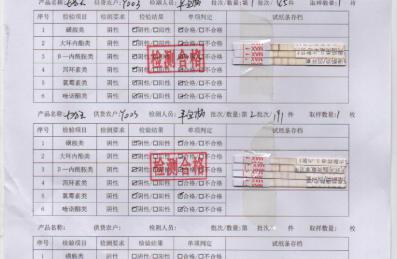 产品名称: 供货农户: Y003 检测人员: 批次/数量:第1批次/ 件 取样数量:1 枚
序号 检验项目 检测要求 检验结果 单项判定 试纸条存档
1 磺胺类 阴性 ☑阴性/☐阳性 ☑合格/☐不合格
2 大环内酯类 阴性 ☑阴性/☐阳性 ☑合格/☐不合格
3 β—内酰胺类 阴性 ☑阴性/☐阳性 ☑合格/☐不合格
4 四环素类 阴性 ☑阴性/☐阳性 ☑合格/☐不合格
5 氯霉素类 阴性 ☑阴性/☐阳性 ☑合格/☐不合格
6 喹诺酮类 阴性 ☑阴性/☐阳性 ☑合格/☐不合格
检测合格
产品名称: 供货农户: Y003 检测人员: 批次/数量:第2批次/ 191 件 取样数量:1 枚
序号 检验项目 检测要求 检验结果 单项判定 试纸条存档
1 磺胺类 阴性 ☑阴性/☐阳性 ☑合格/☐不合格
2 大环内酯类 阴性 ☑阴性/☐阳性 ☑合格/☐不合格
3 β—内酰胺类 阴性 ☑阴性/☐阳性 ☑合格/☐不合格
4 四环素类 阴性 ☑阴性/☐阳性 ☑合格/☐不合格
5 氯霉素类 阴性 ☑阴性/☐阳性 ☑合格/☐不合格
6 喹诺酮类 阴性 ☑阴性/☐阳性 ☑合格/☐不合格
检测合格
产品名称: 供货农户: 检测人员: 批次/数量:第 批次/ 件 取样数量: 枚
序号 检验项目 检测要求 检验结果 单项判定 试纸条存档
1 磺胺类 阴性 ☐阴性/☐阳性 ☐合格/☐不合格